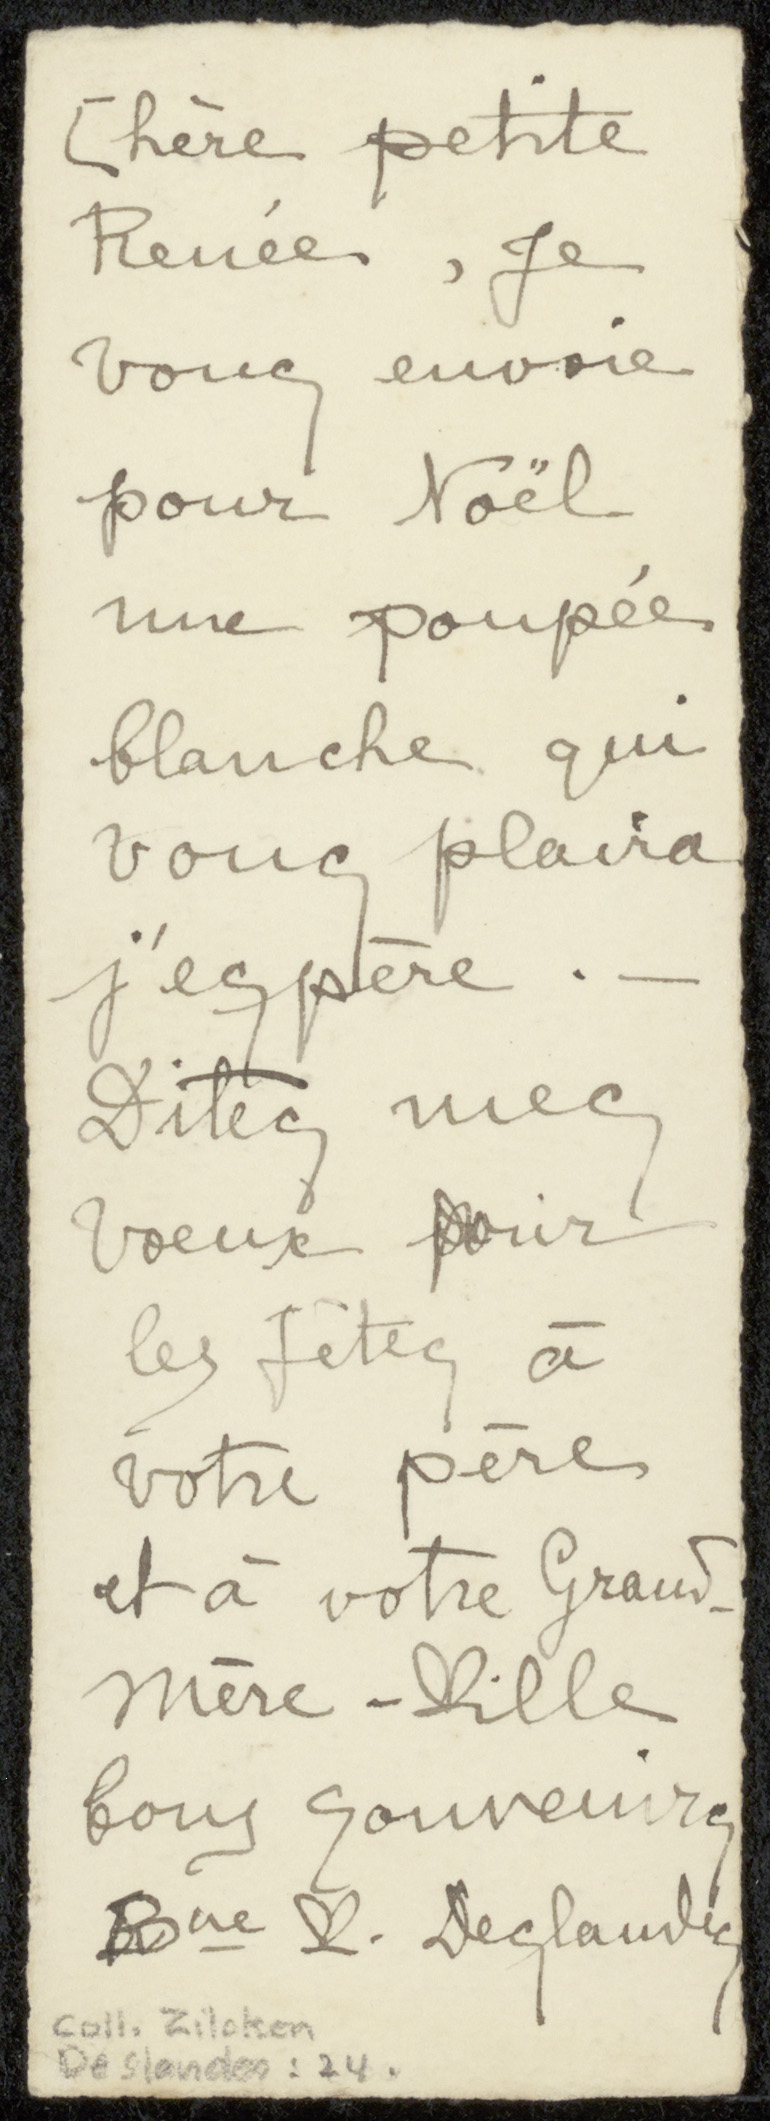 Chère petite
Renée, Je
vous envoie
pour Noël
une poupée
blanche qui
vous plaira
j'espère . —
Dites mes
voeux pour
les fêtes à
votre père
et à votre Grand-
Mère - Mille
bons souvenirs
Bne M. Deslandes
Coll. Zilcken
Deslandes : 24.